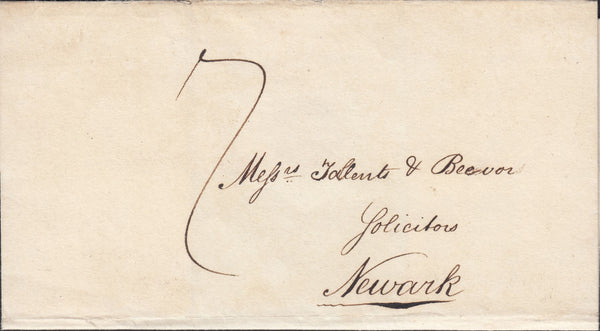 7
Messrs Tallents & Beevor
Solicitors
Newark